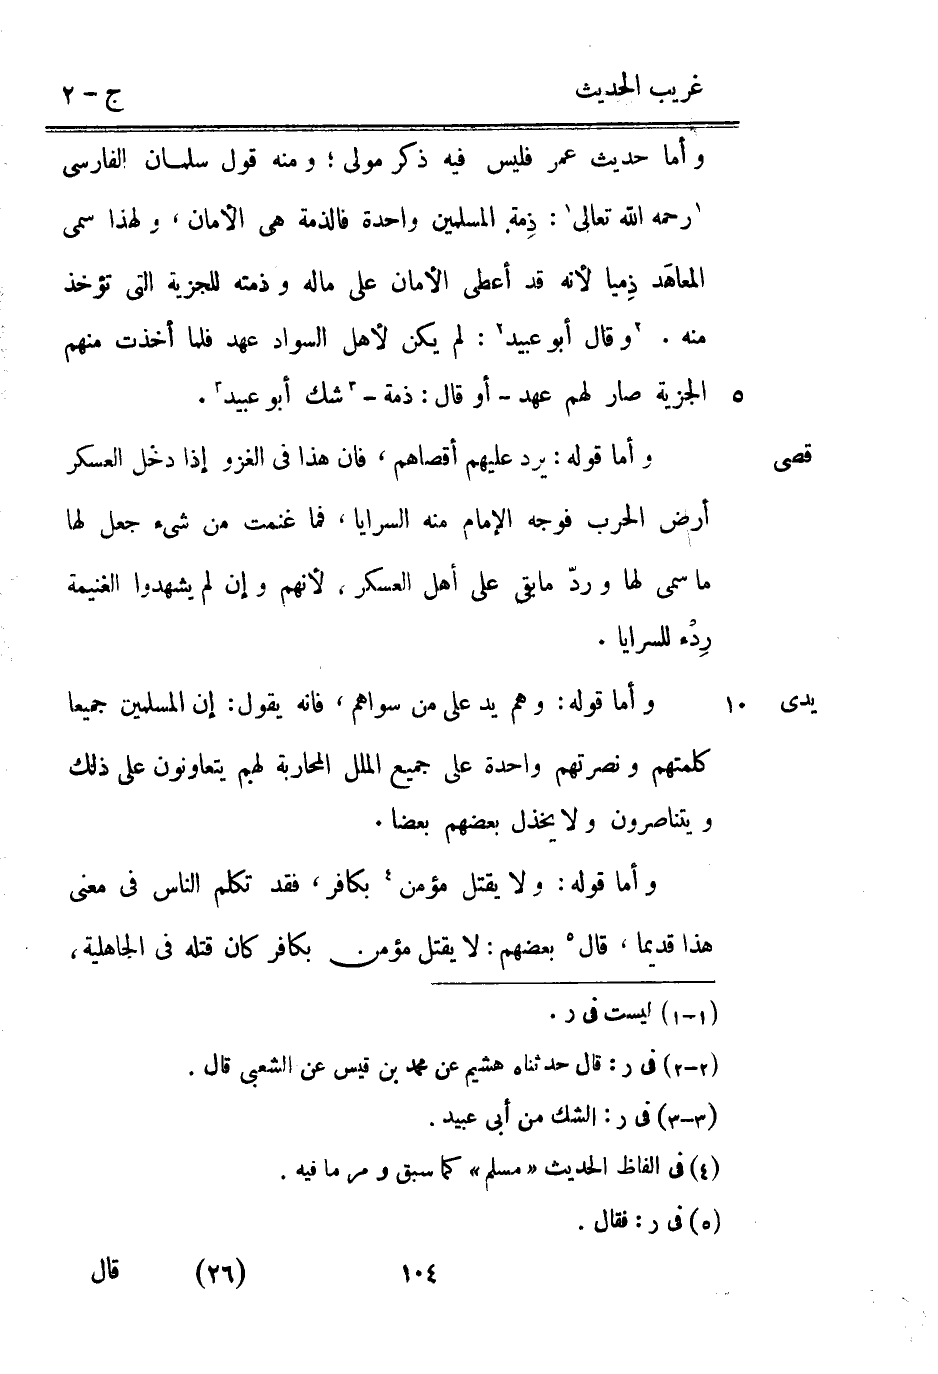 غريب الحديث ج - ٢
و أما حديث عمر فليس فيه ذكر مولى ؛ و منه قول سلمان الفارسى
١رحمه الله تعالى١ : ذِمة المسلمين واحدة فالذمة هى الأمان ، و لهذا سمى
المعاهَد ذِميا لأنه قد أعطى الأمان على ماله و ذمته للجزية التى تؤخذ
منه . ٢و قال أبو عبيد٢ : لم يكن لأهل السواد عهد فلما أخذت منهم
٥ الجزية صار لهم عهد - أو قال : ذمة - ٣شك أبو عبيد٣ .
قصى و أما قوله : يرد عليهم أقصاهم ، فان هذا فى الغزو إذا دخل العسكر
أرض الحرب فوجه الإمام منه السرايا ، فما غنمت من شىء جعل لها
ما سمى لها و ردّ ما بقى على أهل العسكر ، لأنهم و إن لم يشهدوا الغنيمة
رِدْء للسرايا .
يدى ١٠ و أما قوله : و هم يد على من سواهم ، فانه يقول : إن المسلمين جميعا
كلمتهم و نصرتهم واحدة على جميع الملل المحاربة لهم يتعاونون على ذلك
و يتناصرون و لا يخذل بعضهم بعضا .
و أما قوله : و لا يقتل مؤمن٤ بكافر ، فقد تكلم الناس فى معنى
هذا قديما ، قال٥ بعضهم : لا يقتل مؤمن بكافر كان قتله فى الجاهلية ،
(١-١) ليست فى ر .
(٢-٢) فى ر : قال حدثناه هشيم عن محمد بن قيس عن الشعبى قال .
(٣-٣) فى ر : الشك من أبى عبيد .
(٤) فى الفاظ الحديث « مسلم » كما سبق و مر ما فيه .
(٥) فى ر : فقال .
١٠٤ (٢٦) قال